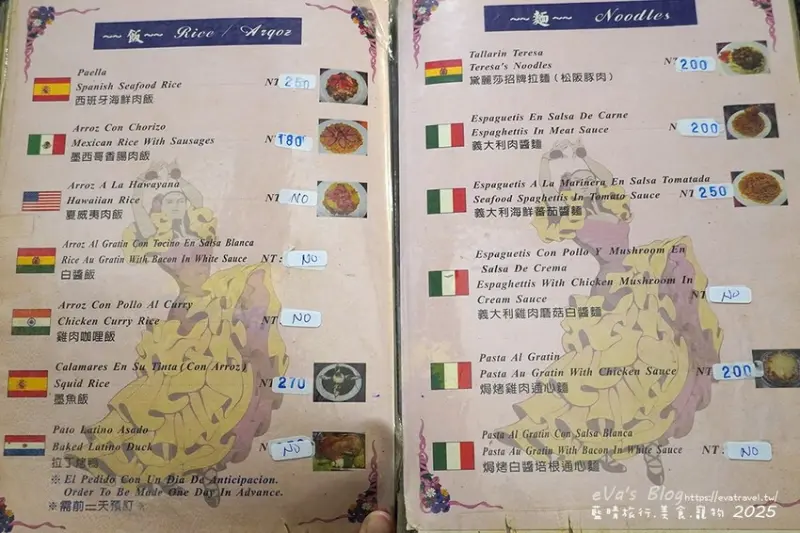 ~~ 飯 ~~ Rice / Arqoz
Paella
Spanish Seafood Rice NT 250
西班牙海鮮肉飯
Arroz Con Chorizo
Mexican Rice With Sausages 180
墨西哥香腸肉飯
Arroz A La Hawayana
Hawaiian Rice NT NO
夏威夷肉飯
Arroz Al Gratin Con Tocino En Salsa Blanca
Rice Au Gratin With Bacon In White Sauce NT: NO
白醬飯
Arroz Con Pollo Al Curry
Chicken Curry Rice NT NO
雞肉咖哩飯
Calamares En Su Tinta (Con Arroz)
Squid Rice NT 270
墨魚飯
Pato Latino Asado
Baked Latino Duck NO
拉丁烤鴨
※ El Pedido Con Un Dia De Anticipacion.
Order To Be Made One Day In Advance.
※需前一天預訂
~~ 麵 ~~ Noodles
Tallarin Teresa
Teresa's Noodles 200
黛麗莎招牌拉麵(松阪豚肉)
Espaguetis En Salsa De Carne
Espaghettis In Meat Sauce 200
義大利肉醬麵
Espaguetis A La Marinera En Salsa Tomatada
Seafood Spaghettis In Tomato Sauce NT 250
義大利海鮮蕃茄醬麵
Espaguetis Con Pollo Y Mushroom En
Salsa De Crema
Espaghettis With Chicken Mushroom In
Cream Sauce NT NO
義大利雞肉磨菇白醬麵
Pasta Al Gratin
Pasta Au Gratin With Chicken Sauce NT 200
焗烤雞肉通心麵
Pasta Al Gratin Con Salsa Blanca
Pasta Au Gratin With Bacon In White Sauce NT: NO
焗烤白醬培根通心麵
eVa's Blog https://evatravel.tw/
藍晴旅行.美食.寵物 2025